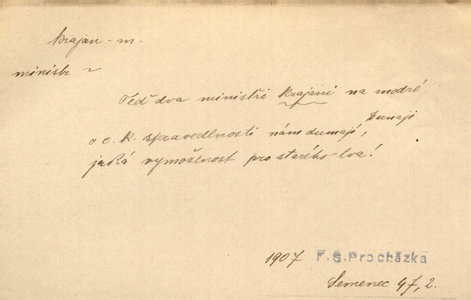 krajan - m.
ministr
Teď dva ministři krajani na modré
Dunaji
o c. k. spravedlnosti nám dumají,
jaká vymoženost pro starého lva!
1907 F. S. Procházka
Semenec 47, 2.